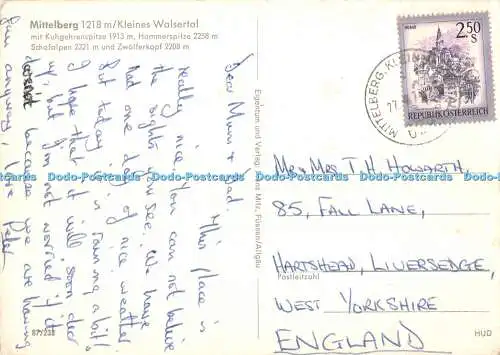 Mittelberg 1218 m/Kleines Walsertal
mit Kuhgehrenspitze 1913 m, Hammerspitze 2258 m
Schafalpen 2321 m und Zwölferkopf 2208 m
Dear Mum & Dad,
This place is
really nice. You can not believe
the sights I can see. We have
had one day of nice weather.
But today it is raining a bit!
I hope that it will soon clear
up, but I'm not worried if it
doesnt because we are having
fun anyway, love Peter
877238
Eigentum und Verlag Franz Milz, Füssen/Allgäu
2.50
S
REPUBLIK ÖSTERREICH
MITTELBERG, KLEIN
Mr & Mrs T. H. HOWARTH,
85, FALL LANE,
HARTSHEAD, LIVERSEDGE,
Postleitzahl
WEST YORKSHIRE
ENGLAND
HUD
Dodo-Postcards Dodo-Postcards Dodo-Postcards Dodo-Postcards Dodo-Postcards